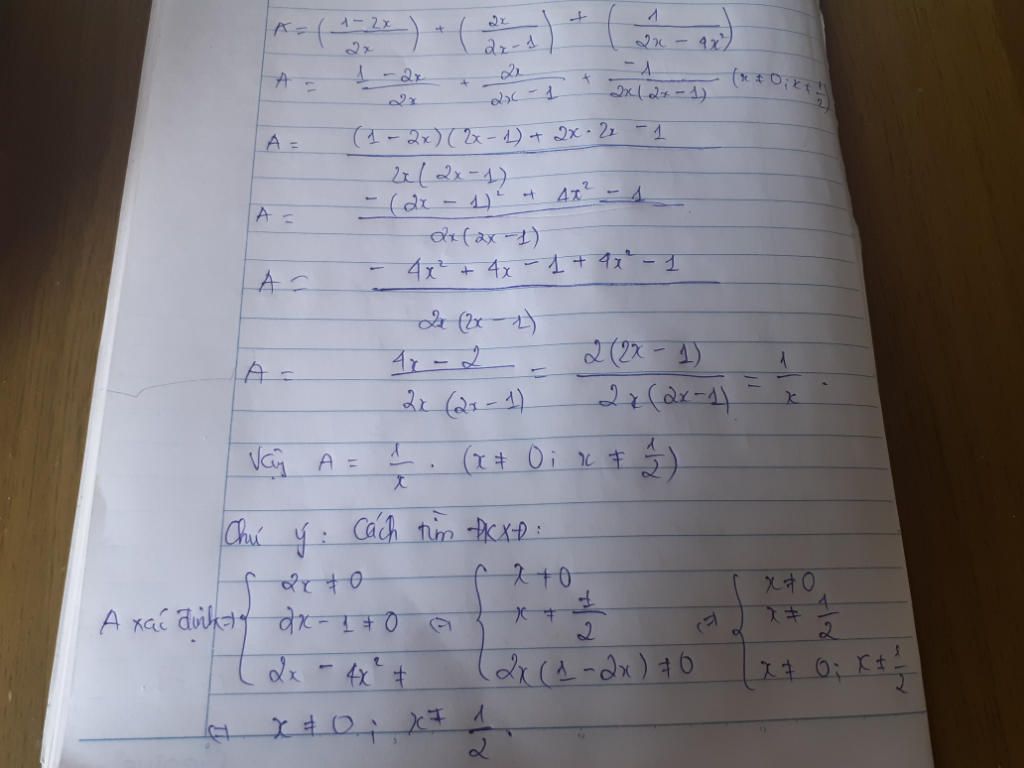 A = (\frac{1-2x}{2x}) + (\frac{2x}{2x-1}) + (\frac{1}{2x-4x²})
A = \frac{1-2x}{2x} + \frac{2x}{2x-1} + \frac{-1}{2x(2x-1)} (x ≠ 0; x ≠ \frac{1}{2})
A = \frac{(1-2x)(2x-1) + 2x·2x - 1}{2x(2x-1)}
A = \frac{-(2x-1)² + 4x² - 1}{2x(2x-1)}
A = \frac{-4x² + 4x - 1 + 4x² - 1}{2x(2x-1)}
A = \frac{4x-2}{2x(2x-1)} = \frac{2(2x-1)}{2x(2x-1)} = \frac{1}{x}.
Vậy A = \frac{1}{x}. (x ≠ 0; x ≠ \frac{1}{2})
Chú ý: Cách tìm ĐKXĐ:
A xác định ⇔ { 2x ≠ 0 ⇔ { x ≠ 0 ⇔ { x ≠ 0
2x - 1 ≠ 0 x ≠ \frac{1}{2} x ≠ \frac{1}{2}
2x - 4x² ≠ 2x(1-2x) ≠ 0 x ≠ 0; x ≠ \frac{1}{2}
⇔ x ≠ 0; x ≠ \frac{1}{2}.